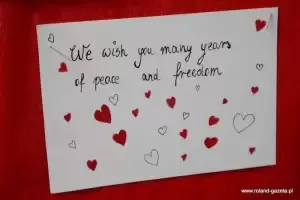 We wish you many years
of peace and freedom
www.roland-gazeta.pl